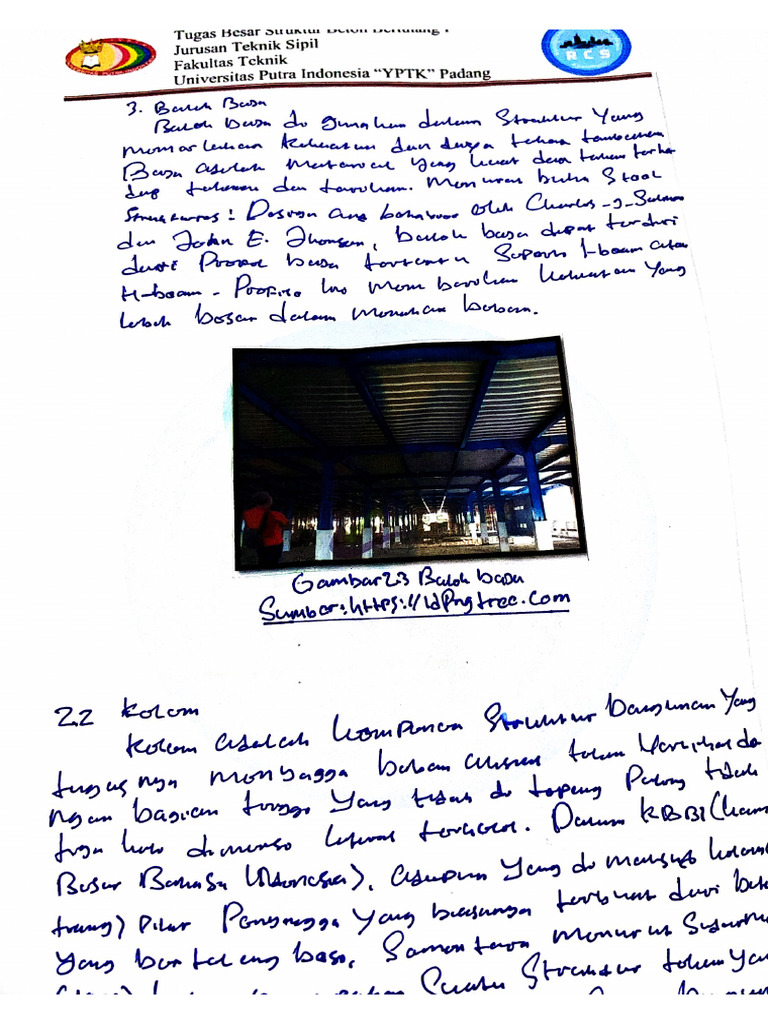 Tugas Besar Struktur Beton Bertulang I
Jurusan Teknik Sipil
Fakultas Teknik
Universitas Putra Indonesia "YPTK" Padang
RCS
3. Balok Baja
Balok baja di gunakan dalam Struktur Yang
memerlukan kekuatan dan daya tahan tambahan
Baja adalah Material yang kuat dan tahan terha
dap tekanan dan tarikan. Menurut buku Steel
Structures: Design and behavior oleh Charles-G-Salmon
dan John E. Jhonson, balok baja dapat terdiri
dari Profil baja tertentu Seperti I-beam atau
H-beam - Profil ini Memberikan kekuatan Yang
lebih besar dalam Menahan beban.
Gambar 2.3 Balok baja
Sumber: https://idPngtree.Com
2.2 Kolom
Kolom adalah komponen Struktur bangunan Yang
tugas nya menyangga beban aksial tekan Vertikal de
ngan bagian tinggi Yang tidak di topang Paling tidak
tiga kali dimensi lateral terkecil. Dalam KBBI (Kamus
Besar Bahasa Indonesia), adapun Yang di maksud kolom
tiang) Pilar Penyangga Yang biasanya terbuat dari beton
yang bertulang besi, Sementara menurut
Suatu Struktur tekan Yan